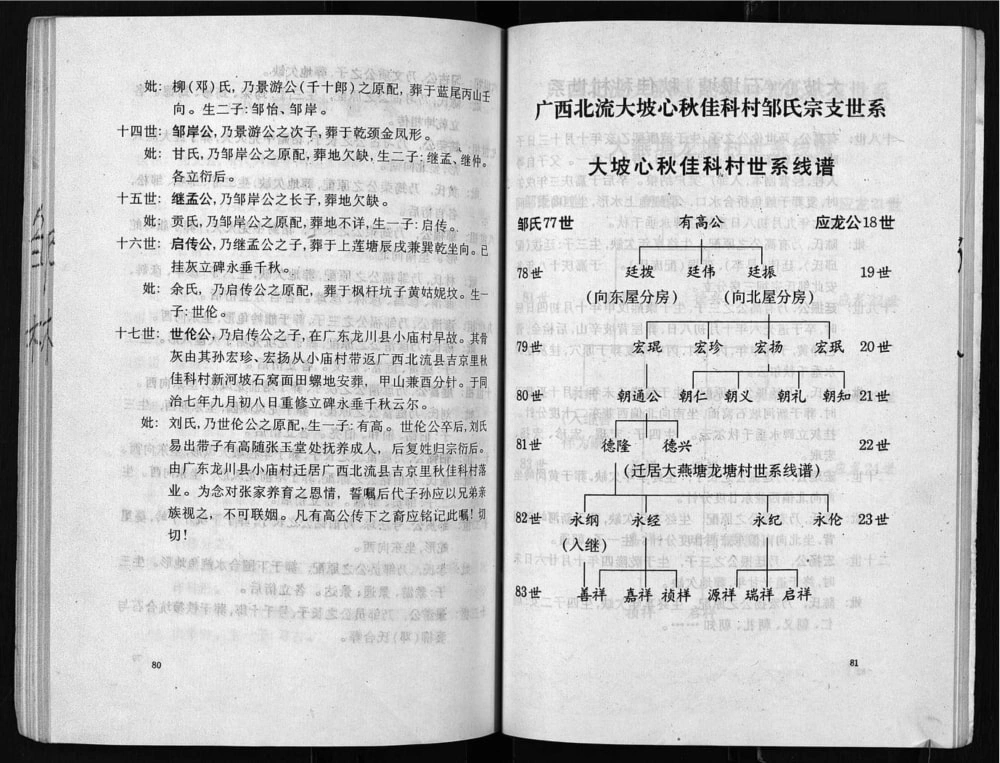 妣：柳(邓)氏，乃景游公(千十郎)之原配，葬于蓝尾丙山壬
向。生二子：邹怡、邹岸。
十四世：邹岸公，乃景游公之次子，葬于乾颈金凤形。
妣：甘氏，乃邹岸公之原配，葬地欠缺，生二子：继孟、继仲。
各立衍后。
十五世：继孟公，乃邹岸公之长子，葬地欠缺。
妣：贡氏，乃邹岸公之原配，葬地不详，生一子：启传。
十六世：启传公，乃继孟公之子，葬于上莲塘辰戌兼巽乾坐向。已
挂灰立碑永垂千秋。
妣：余氏，乃启传公之原配，葬于枫杆坑子黄姑妮坟。生一
子：世伦。
十七世：世伦公，乃启传公之子，在广东龙川县小庙村早故。其骨
灰由其孙宏珍、宏扬从小庙村带返广西北流县吉京里秋
佳科村新河坡石窝面田螺地安葬，甲山兼酉分针。于同
治七年九月初八日重修立碑永垂千秋云尔。
妣：刘氏，乃世伦公之原配，生一子：有高。世伦公卒后，刘氏
易出带子有高随张玉堂处抚养成人，后复姓归宗衍后。
由广东龙川县小庙村迁居广西北流县吉京里秋佳科村落
业。为念对张家养育之恩情，誓嘱后代子孙应以兄弟亲
族视之，不可联姻。凡有高公传下之裔应铭记此嘱！切
切！
80
广西北流大坡心秋佳科村邹氏宗支世系
大坡心秋佳科村世系线谱
邹氏77世 有高公 应龙公18世
78世 廷拨 廷伟 廷振 19世
(向东屋分房) (向北屋分房)
79世 宏珉 宏珍 宏扬 宏珉 20世
80世 朝通公 朝仁 朝义 朝礼 朝知 21世
81世 德隆 德兴 22世
(迁居大燕塘龙塘村世系线谱)
82世 永纲 永经 永纪 永伦 23世
(入继)
83世 善祥 嘉祥 祯祥 源祥 瑞祥 启祥
81